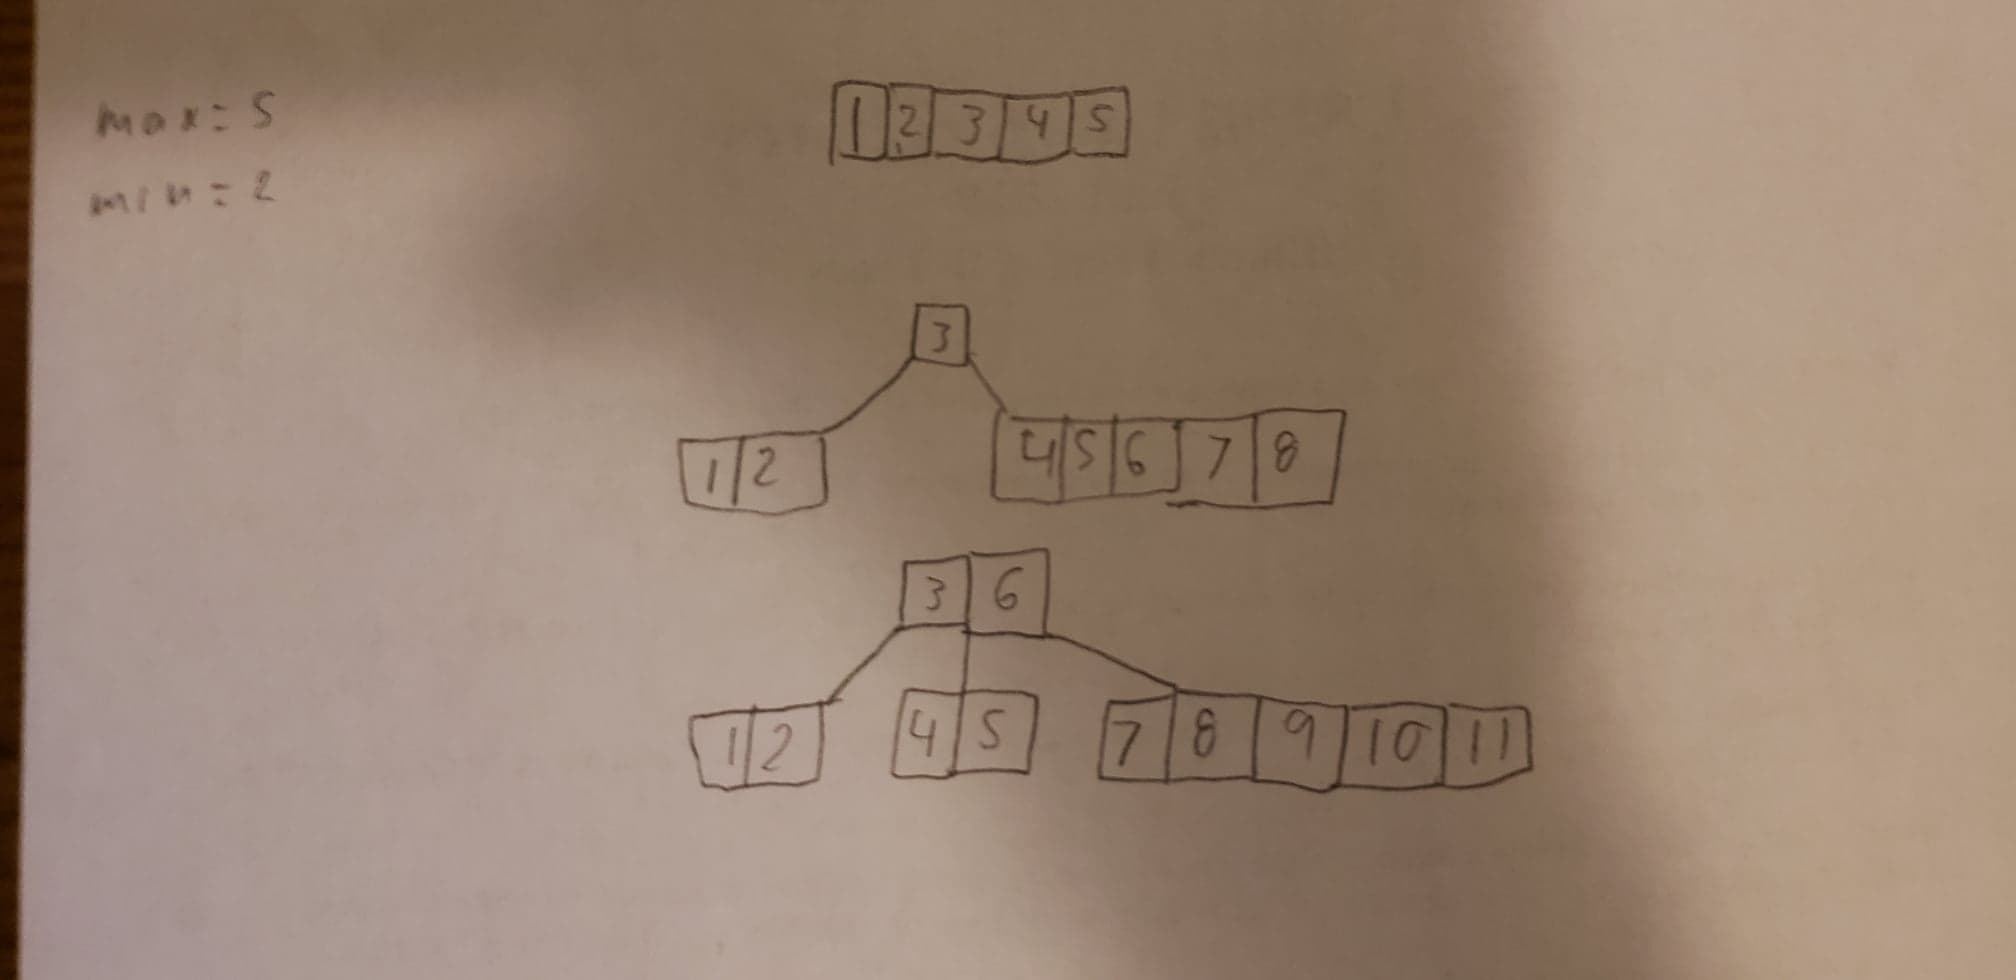 max = 5
min = 2
1 2 3 4 5
3
1 2 4 5 6 7 8
3 6
1 2 4 5 7 8 9 10 11